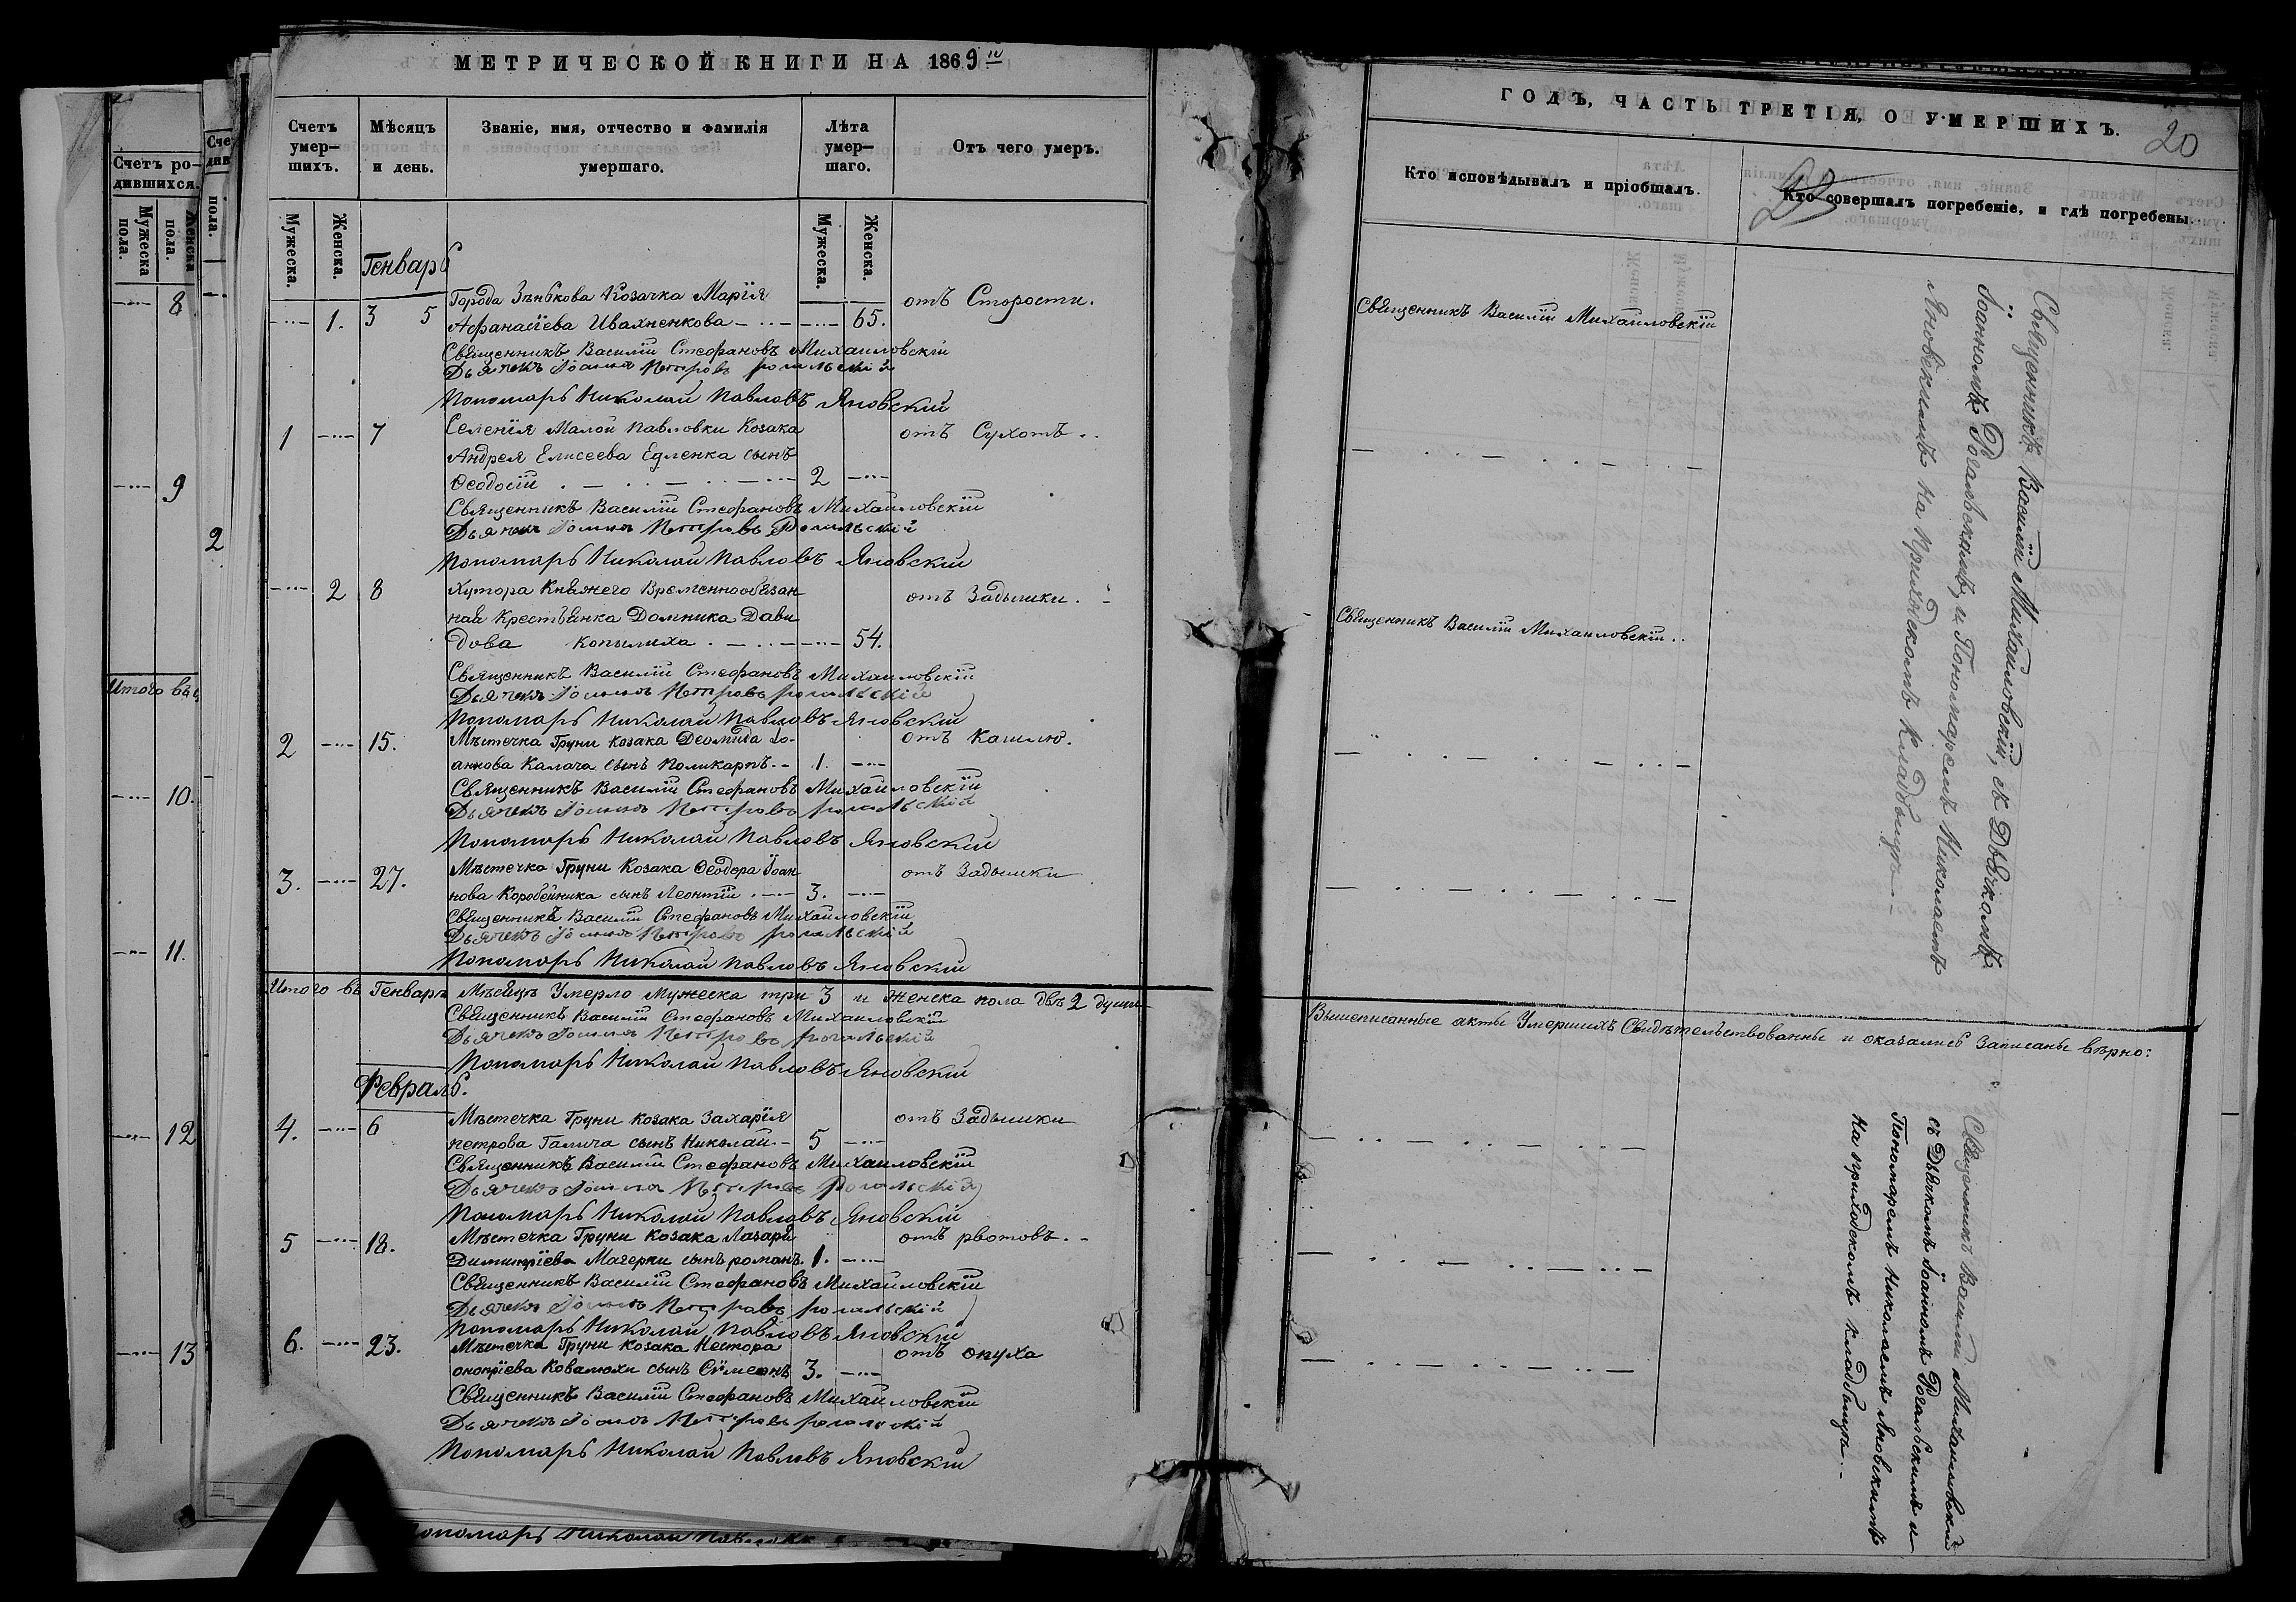 МЕТРИЧЕСКОЙ КНИГИ НА 1869й
Счетъ умер—шихъ.
Мѣсяцъ и день.
Званіе, имя, отчество и фамилія умершаго.
Лѣта умер—шаго.
Отъ чего умеръ.
Мужеска.
Женска.
Мужеска.
Женска.
Генварь
Города Зѣнькова Козачка Марія отъ Старости.
1. 3 5 Афанасіева Ивахненкова 65.
Священникъ Василій Стефановъ Михайловскій
Дьячекъ Іоаннъ Петровъ Рогальскій
Пономарь Николай Павловъ Яновскій
1 7 Селенія Малой Павловки Козака отъ Сухотъ
Андрея Елисеева Едленка сынъ
Ѳеодосій 2
Священникъ Василій Стефановъ Михайловскій
Дьячекъ Іоаннъ Петровъ Рогальскій
Пономарь Николай Павловъ Яновскій
2 8 Хутора Княжего Временнообязан отъ Задышки.
ная Крестьянка Домника Дави
дова Копылиха 54.
Священникъ Василій Стефановъ Михайловскій
Дьячекъ Іоаннъ Петровъ Рогальскій
Пономарь Николай Павловъ Яновскій
2 15. Мѣстечка Груни Козака Деомида Іо- отъ Кашлю.
аннова Калача сынъ Поликарпъ. 1.
Священникъ Василій Стефановъ Михайловскій
Дьячекъ Іоаннъ Петровъ Рогальскій
Пономарь Николай Павловъ Яновскій
3. 27. Мѣстечка Груни Козака Ѳеодора Іоан отъ Задышки
нова Коробейника сынъ Леонтій 3.
Священникъ Василій Стефановъ Михайловскій
Дьячекъ Іоаннъ Петровъ Рогальскій
Пономарь Николай Павловъ Яновскій
Итого въ Генварѣ Мѣсяцѣ Умерло Мужеска три 3 и Женска пола двѣ 2 души
Священникъ Василій Стефановъ Михайловскій
Дьячекъ Іоаннъ Петровъ Рогальскій
Пономарь Николай Павловъ Яновскій
Февраль.
4. 6 Мѣстечка Груни Козака Захарія отъ Задышки
Петрова Галича сынъ Николай 5
Священникъ Василій Стефановъ Михайловскій
Дьячекъ Іоаннъ Петровъ Рогальскій
Пономарь Николай Павловъ Яновскій
5 18. Мѣстечка Груни Козака Лазаря отъ рвотовъ.
Димитріева Мачерки сынъ Романъ 1.
Священникъ Василій Стефановъ Михайловскій
Дьячекъ Іоаннъ Петровъ Рогальскій
Пономарь Николай Павловъ Яновскій
6. 23. Мѣстечка Груни Козака Нестора отъ опуха
Онопріева Ковалюхи сынъ Сѵмеонъ 3.
Священникъ Василій Стефановъ Михайловскій
Дьячекъ Іоаннъ Петровъ Рогальскій
Пономарь Николай Павловъ Яновскій
ГОДЪ, ЧАСТЬ ТРЕТІЯ, О УМЕРШИХЪ.
20
Кто исповѣдывалъ и пріобщалъ.
Кто совершалъ погребеніе, и гдѣ погребены.
Священникъ Василій Михайловскій
Священникъ Василій Михайловскій
Священникъ Василій Михайловскій, съ Дьячкомъ
Іоанномъ Рогальскимъ, и Пономаремъ Николаемъ
Яновскимъ на приходскомъ кладбищѣ
Вышеписанные акты Умершихъ Свидѣтельствованны и оказались Записаны вѣрно:
Священникъ Василій Михайловскій
съ Дьячкомъ Іоанномъ Рогальскимъ и
Пономаремъ Николаемъ Яновскимъ
на приходскомъ кладбищѣ
Счетъ ро—дившихся.
Мужеска пола.
Женска пола.
8
9
Итого въ
10.
11.
12
13
Сче
див
пола.
2
Пономарь Николай